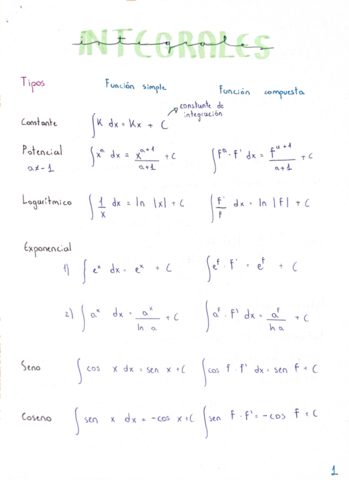 INTEGRALES
integrales
Tipos Función simple Función compuesta
constante de integración
Constante ∫K dx = Kx + C
Potencial ∫x^a dx = x^(a+1)/(a+1) + C ∫f^a · f' dx = f^(a+1)/(a+1) + C
a≠-1
Logarítmico ∫1/x dx = ln |x| + C ∫f'/f dx = ln |f| + C
Exponencial
1) ∫e^x dx = e^x + C ∫e^f · f' = e^f + C
2) ∫a^x dx = a^x/ln a + C ∫a^f · f' dx = a^f/ln a + C
Seno ∫cos x dx = sen x + C ∫cos f · f' dx = sen f + C
Coseno ∫sen x dx = -cos x + C ∫sen f · f' = -cos f + C
1